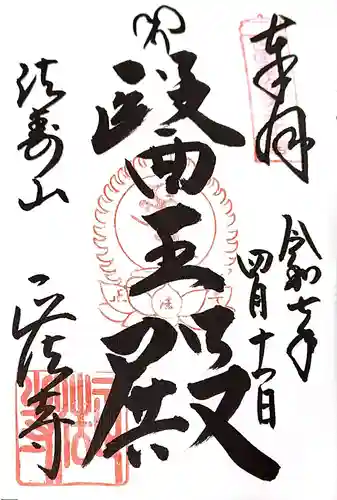 奉拝
令和七年
四月十一日
醫王殿
法壽山
正法寺